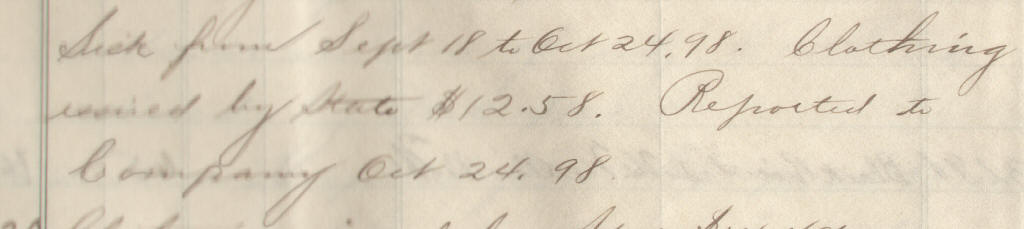 Sick from Sept 18 to Oct 24, 98. Clothing
issued by State $12.58. Reported to
Company Oct 24. 98.